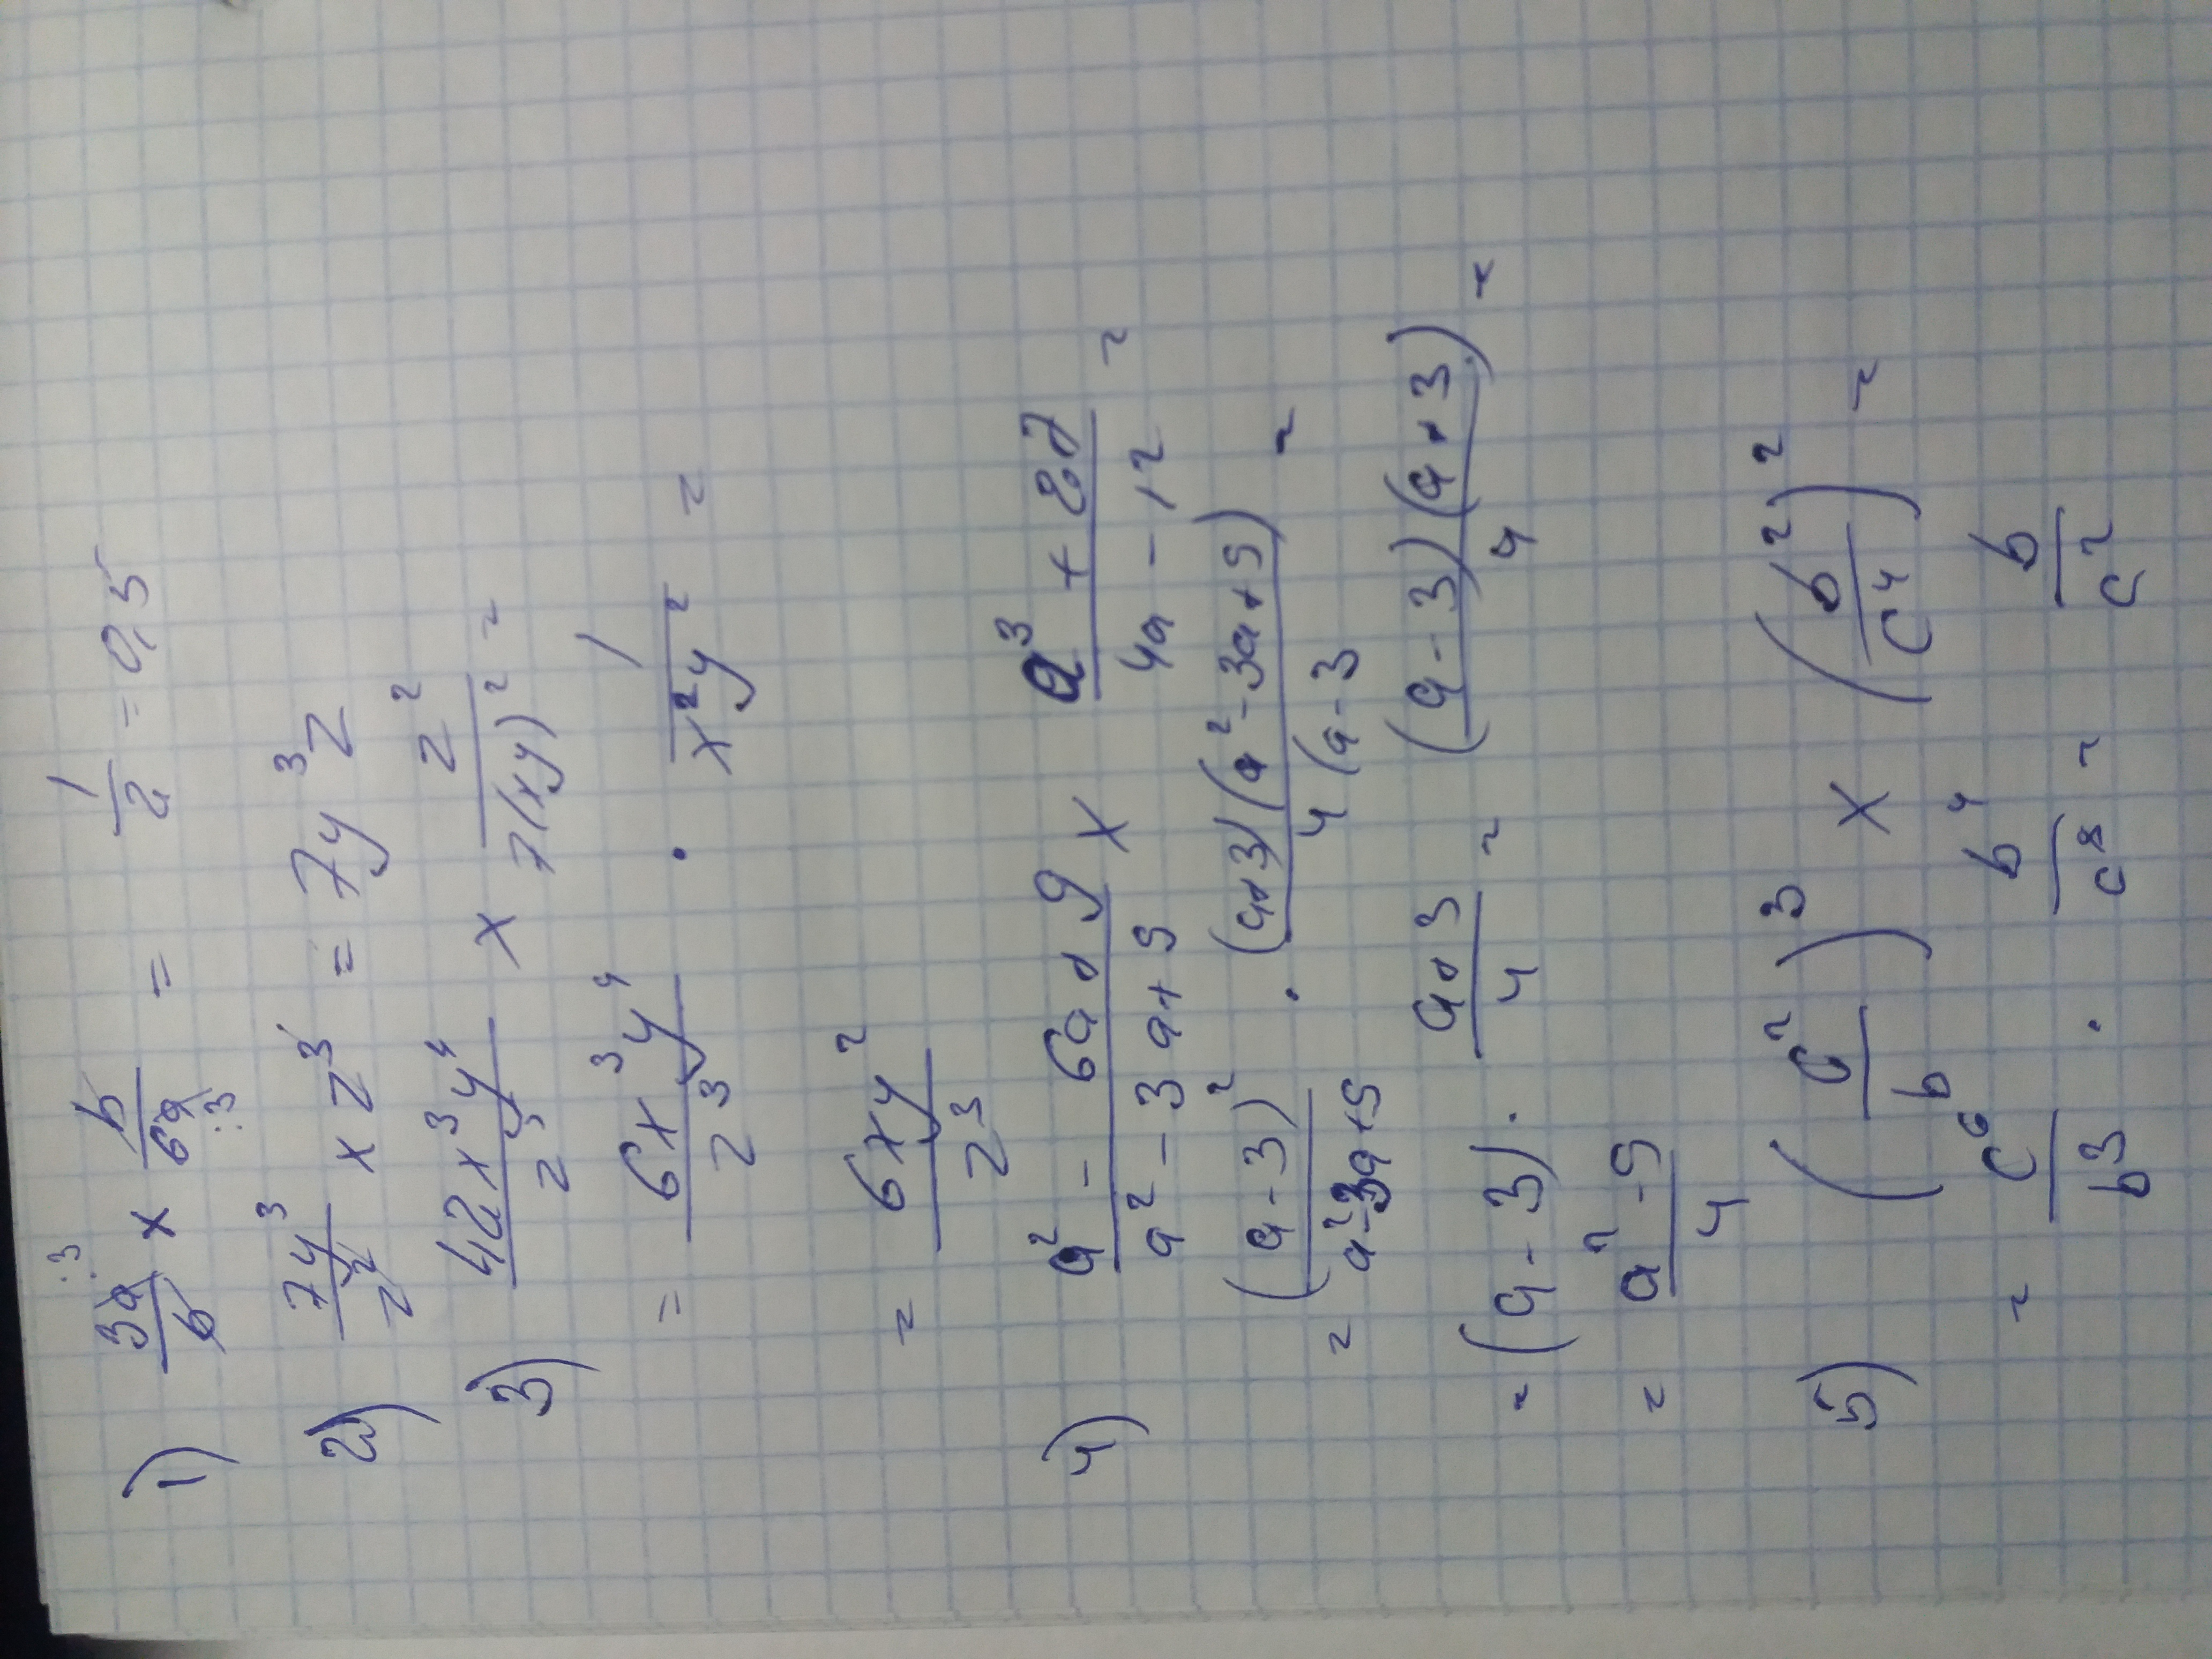 1) 3a/b × b/6a = 1/2 = 0,5
:3 :3
2) 7y³/z² × z³ = 7y³z
3) 42x³y⁴/z³ × z²/7(xy)² =
= 6x³y⁴/z³ · 1/x²y² =
= 6xy²/z³
4) a² - 6a + 9/a² - 3a + 9 × a³ + 27/4a - 12 =
= (a - 3)²/a² - 3a + 9 · (a + 3)(a² - 3a + 9)/4(a - 3 =
= (a - 3) · a + 3/4 = (a - 3)(a + 3)/4 =
= a² - 9/4
5) (c²/b)³ × (b²/c⁴)² =
= c⁶/b³ · b⁴/c⁸ = b/c²